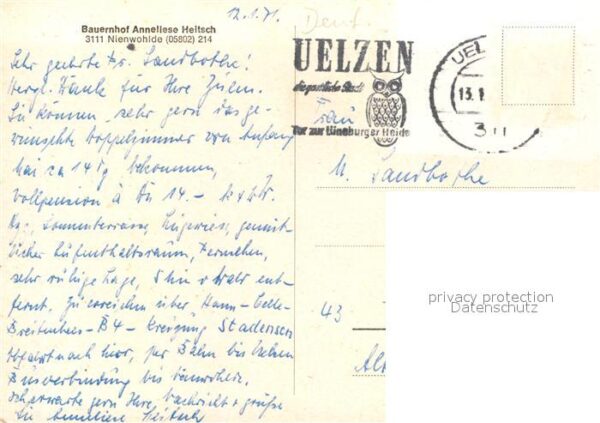 12.1.71.
Bauernhof Anneliese Heitsch
3111 Nienwohlde (05802) 214
Sehr geehrte Fr. Sandbothe!
Herzl. Dank für Ihre Zeilen.
Sie können sehr gern das ge-
wünschte Doppelzimmer von Anfang
Mai 14 Tg bekommen,
Vollpension à DM 14.-
Sommerterrasse, Liegewiese, gemüt-
licher Aufenthaltsraum, Fernsehen,
sehr ruhige Lage, 5 Min v Wald ent-
fernt. Zu erreichen über Hann-Celle-
B4- Kreuzung Stadensen
Abfahrt nach hier, per Bahn bis Uelzen
Busverbindung bis Nienwohlde.
Ich erwarte gern Ihre Nachricht + grüße
Sie Anneliese Heitsch
UELZEN
die gastliche Stadt
Tor zur Lüneburger Heide
UEL
13.1
311
Frau
M. Sandbothe
43
privacy protection
Datenschutz